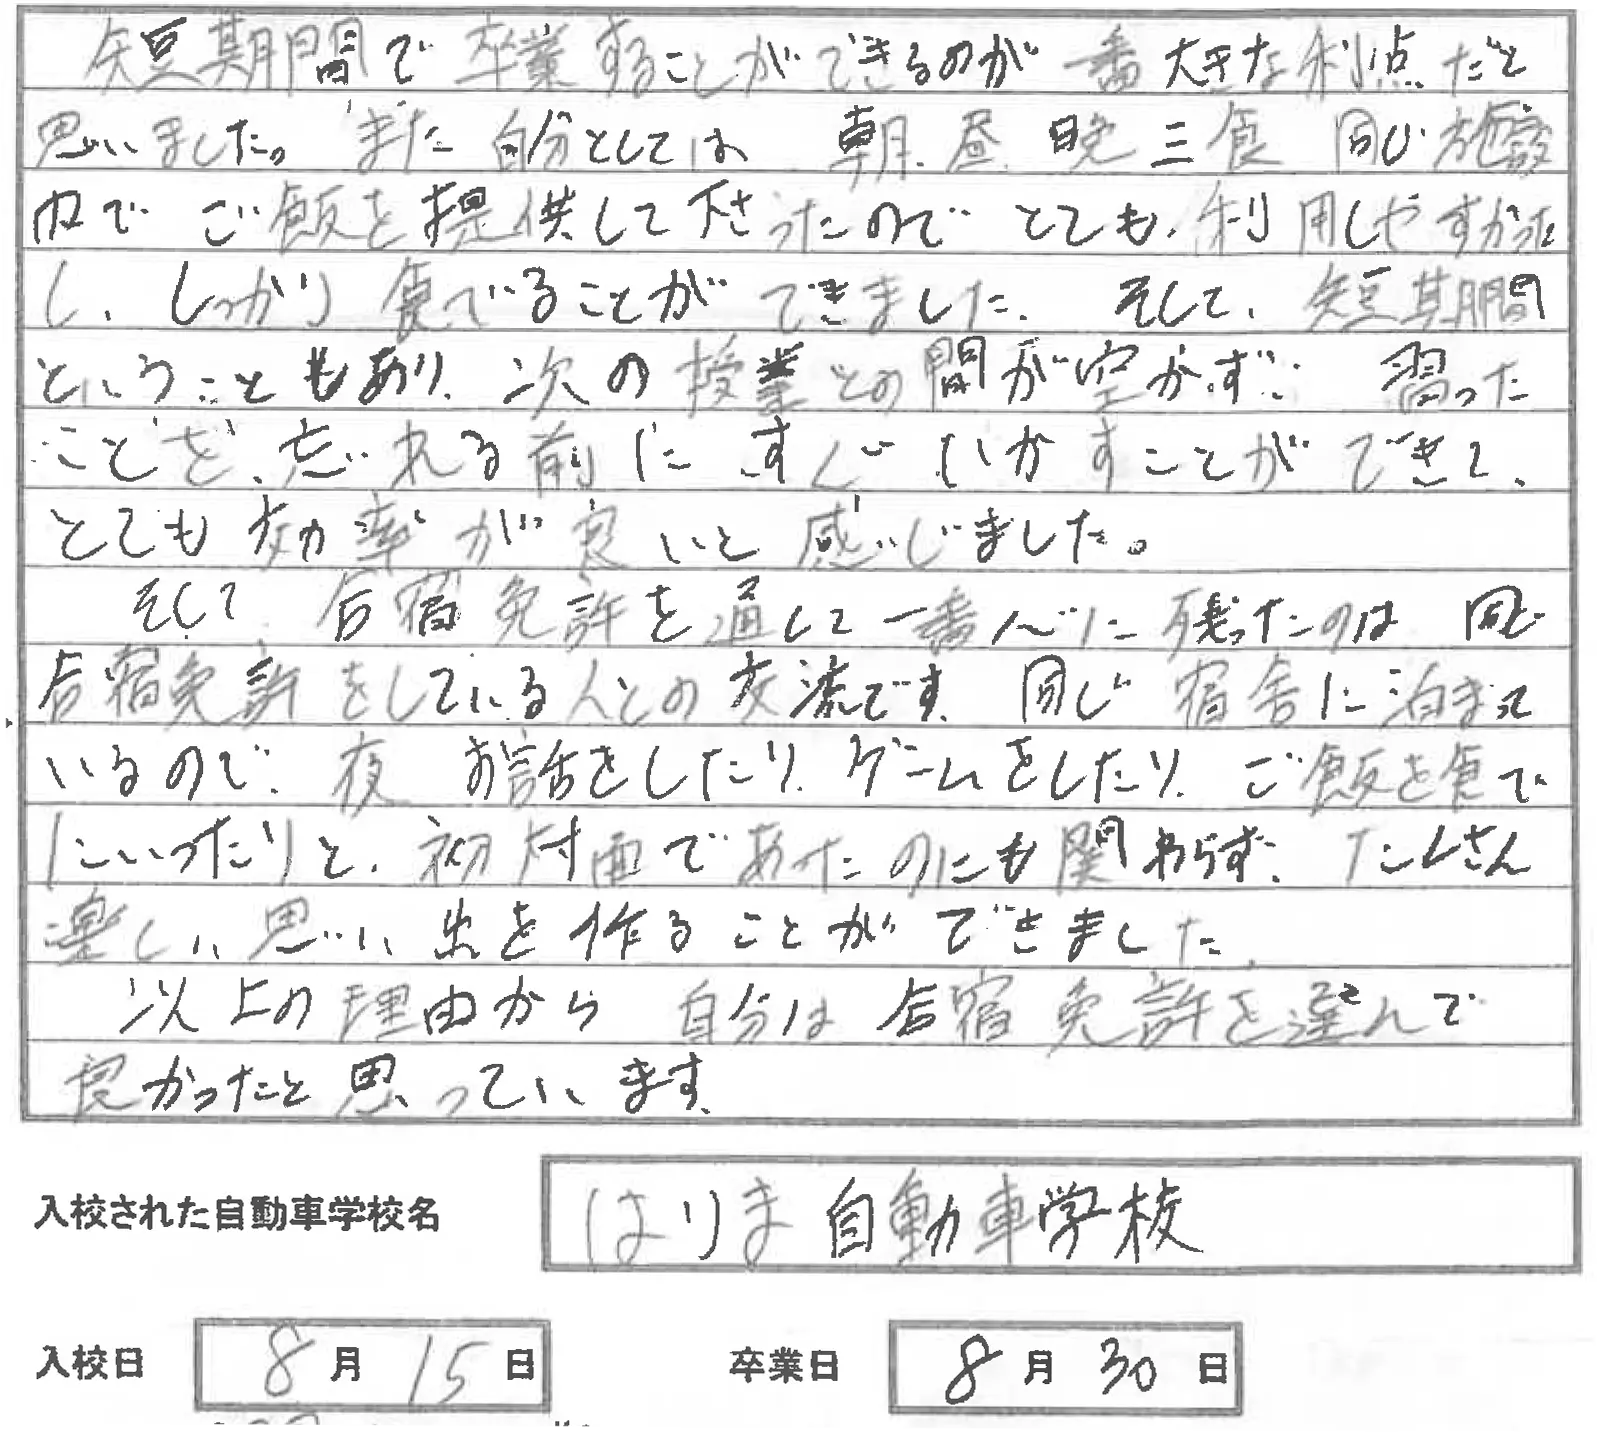 短期間で卒業することができるのが一番大きな利点だと
思いました。また自分としては、朝、昼、晩三食同じ施設
内でご飯を提供して下さったのでとても、利用しやすかった
し、しっかり食べることができました。そして、短期間
ということもあり、次の授業との間が空かず、習った
ことを、忘れる前にすぐいかすことができて、
とても効率が良いと感じました。
そして合宿免許を通して一番心に残ったのは同じ
合宿免許をしている人との交流です。同じ宿舎に泊まって
いるので、夜お話をしたり、ゲームをしたり、ご飯を食べ
にいったりと、初対面であったのにも関わらず、たくさん
楽しい思い出を作ることができました。
以上の理由から自分は合宿免許を選んで
良かったと思っています。
入校された自動車学校名 はりま自動車学校
入校日 8月15日 卒業日 8月30日